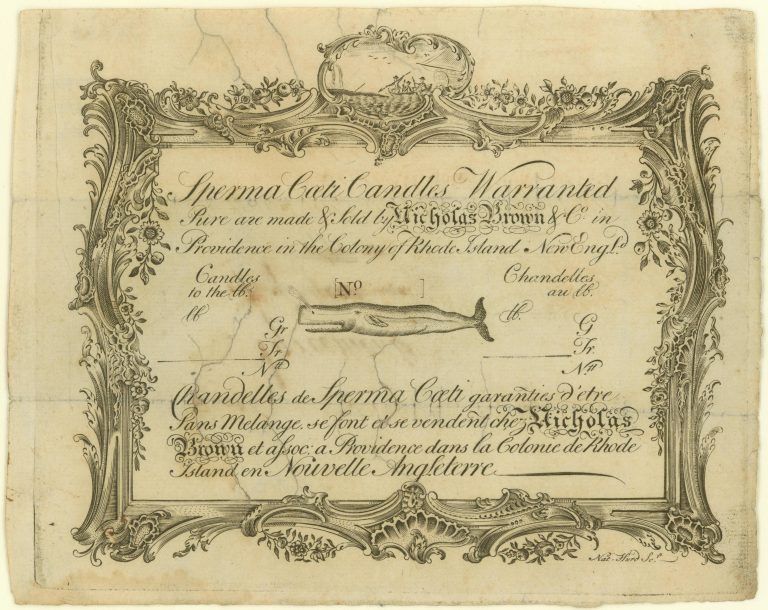 Sperma Cœti Candles Warranted
Pure are made & Sold by Nicholas Brown & Co. in
Providence in the Colony of Rhode Island New Engld.
Candles to the lb. [No ] Chandelles au lb.
lb lb.
Gr G
Tr. Tr.
Nt Nt
Chandelles de Sperma Cœti garanties d'etre
Sans Melange. se font et se vendent chez Nicholas
Brown et assoc: a Providence dans la Colonie de Rhode
Island en Nouvelle Angleterre
Nat. Hurd Sc.